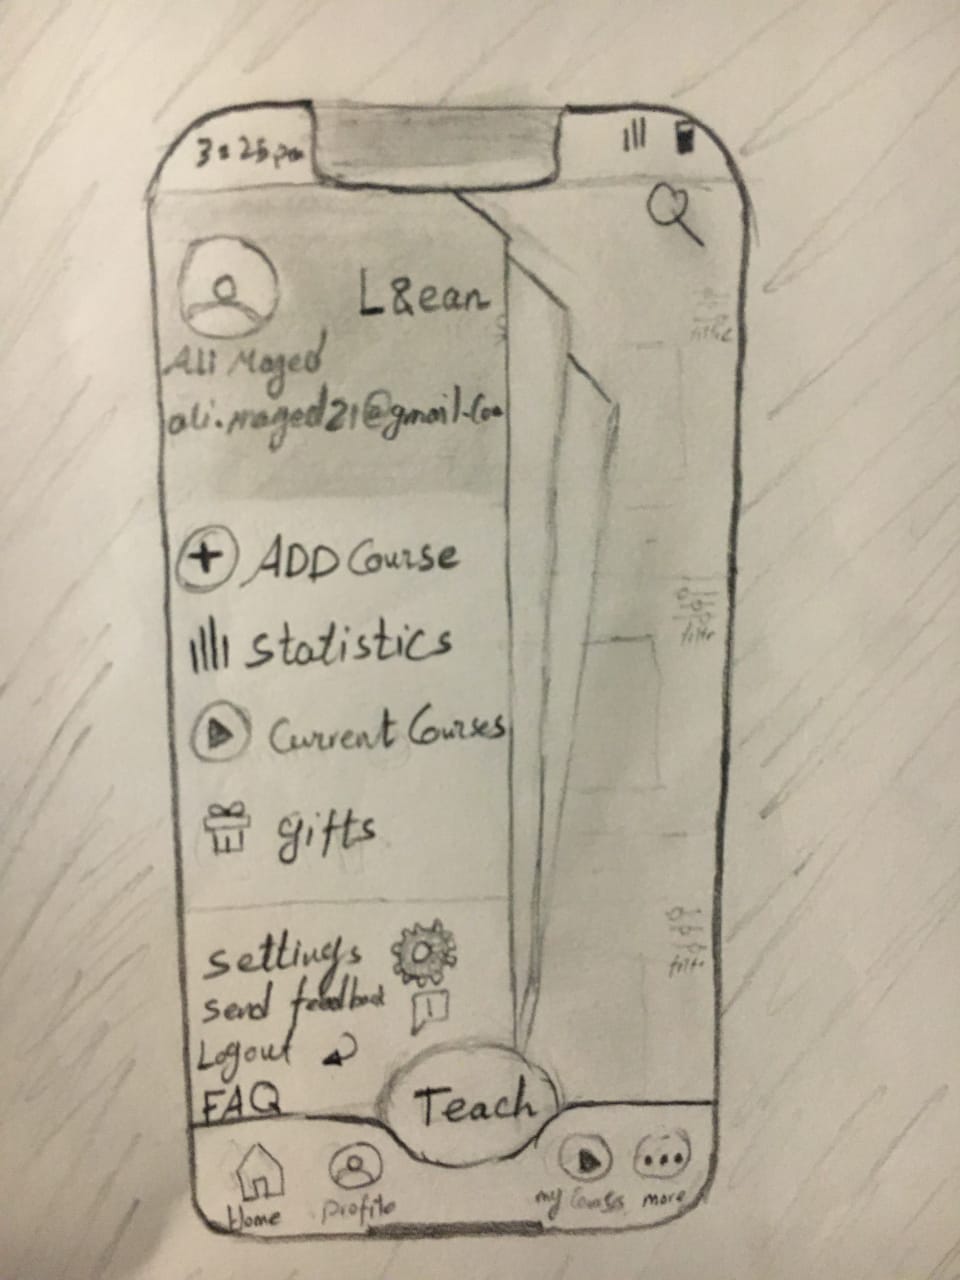 3:25 pm
L&ean
Ali Maged
ali.maged21@gmail.com
ADD Course
Statistics
Current Courses
gifts
filter
filter
filter
settings
Send feedback
Logout
FAQ
Teach
Home
Profile
my Courses
more